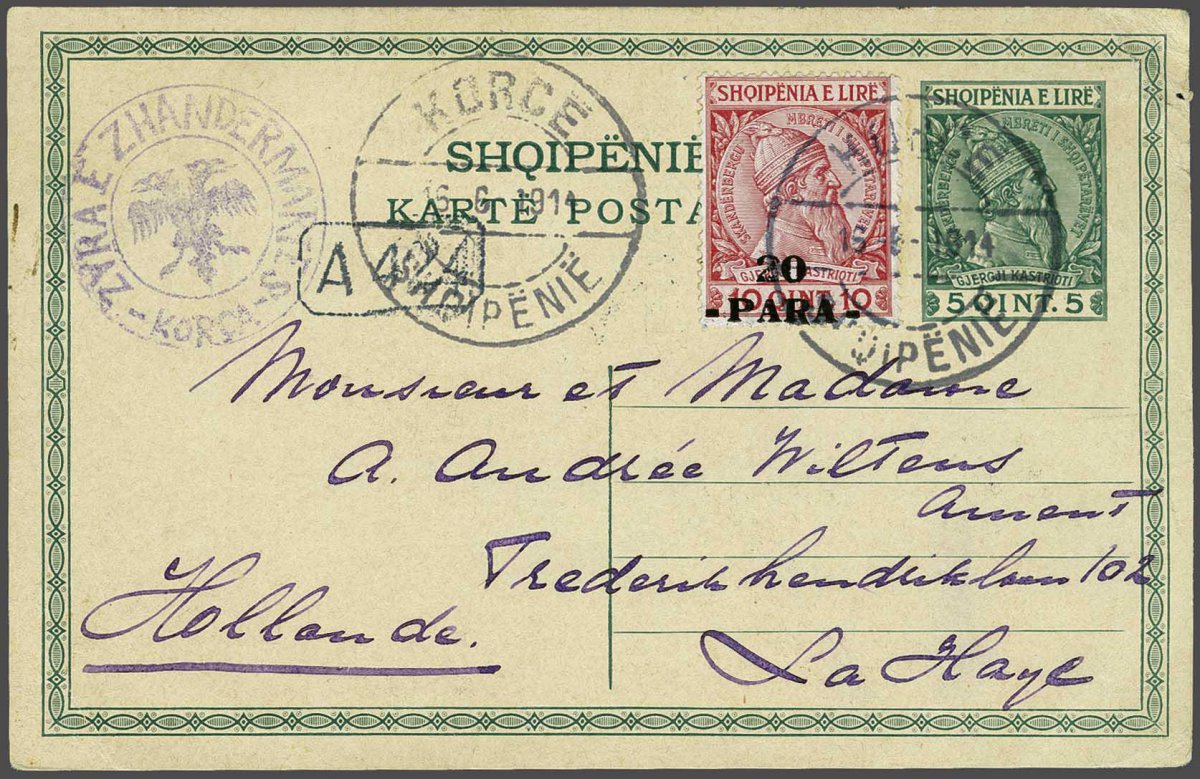 SHQIPËNIË
KARTË POSTA
ZYRA E ZHANDERMARIES
- KORÇA -
KORCË
16.6.1914
SHQIPËNIË
A 44
SHQIPËNIA E LIRË
SKANDERBEGU MBRETI I SHQIPETARVET
GJERGJ KASTRIOTI
10 QINT 10
20
- PARA -
SHQIPËNIA E LIRË
SKANDERBEGU MBRETI I SHQIPETARVET
GJERGJ KASTRIOTI
5 QINT. 5
1914
SHQIPËNIË
Monsieur et Madame
A. Andrée Wiltens
Ament
Frederik hendriklaan 102
La Haye
Hollande.